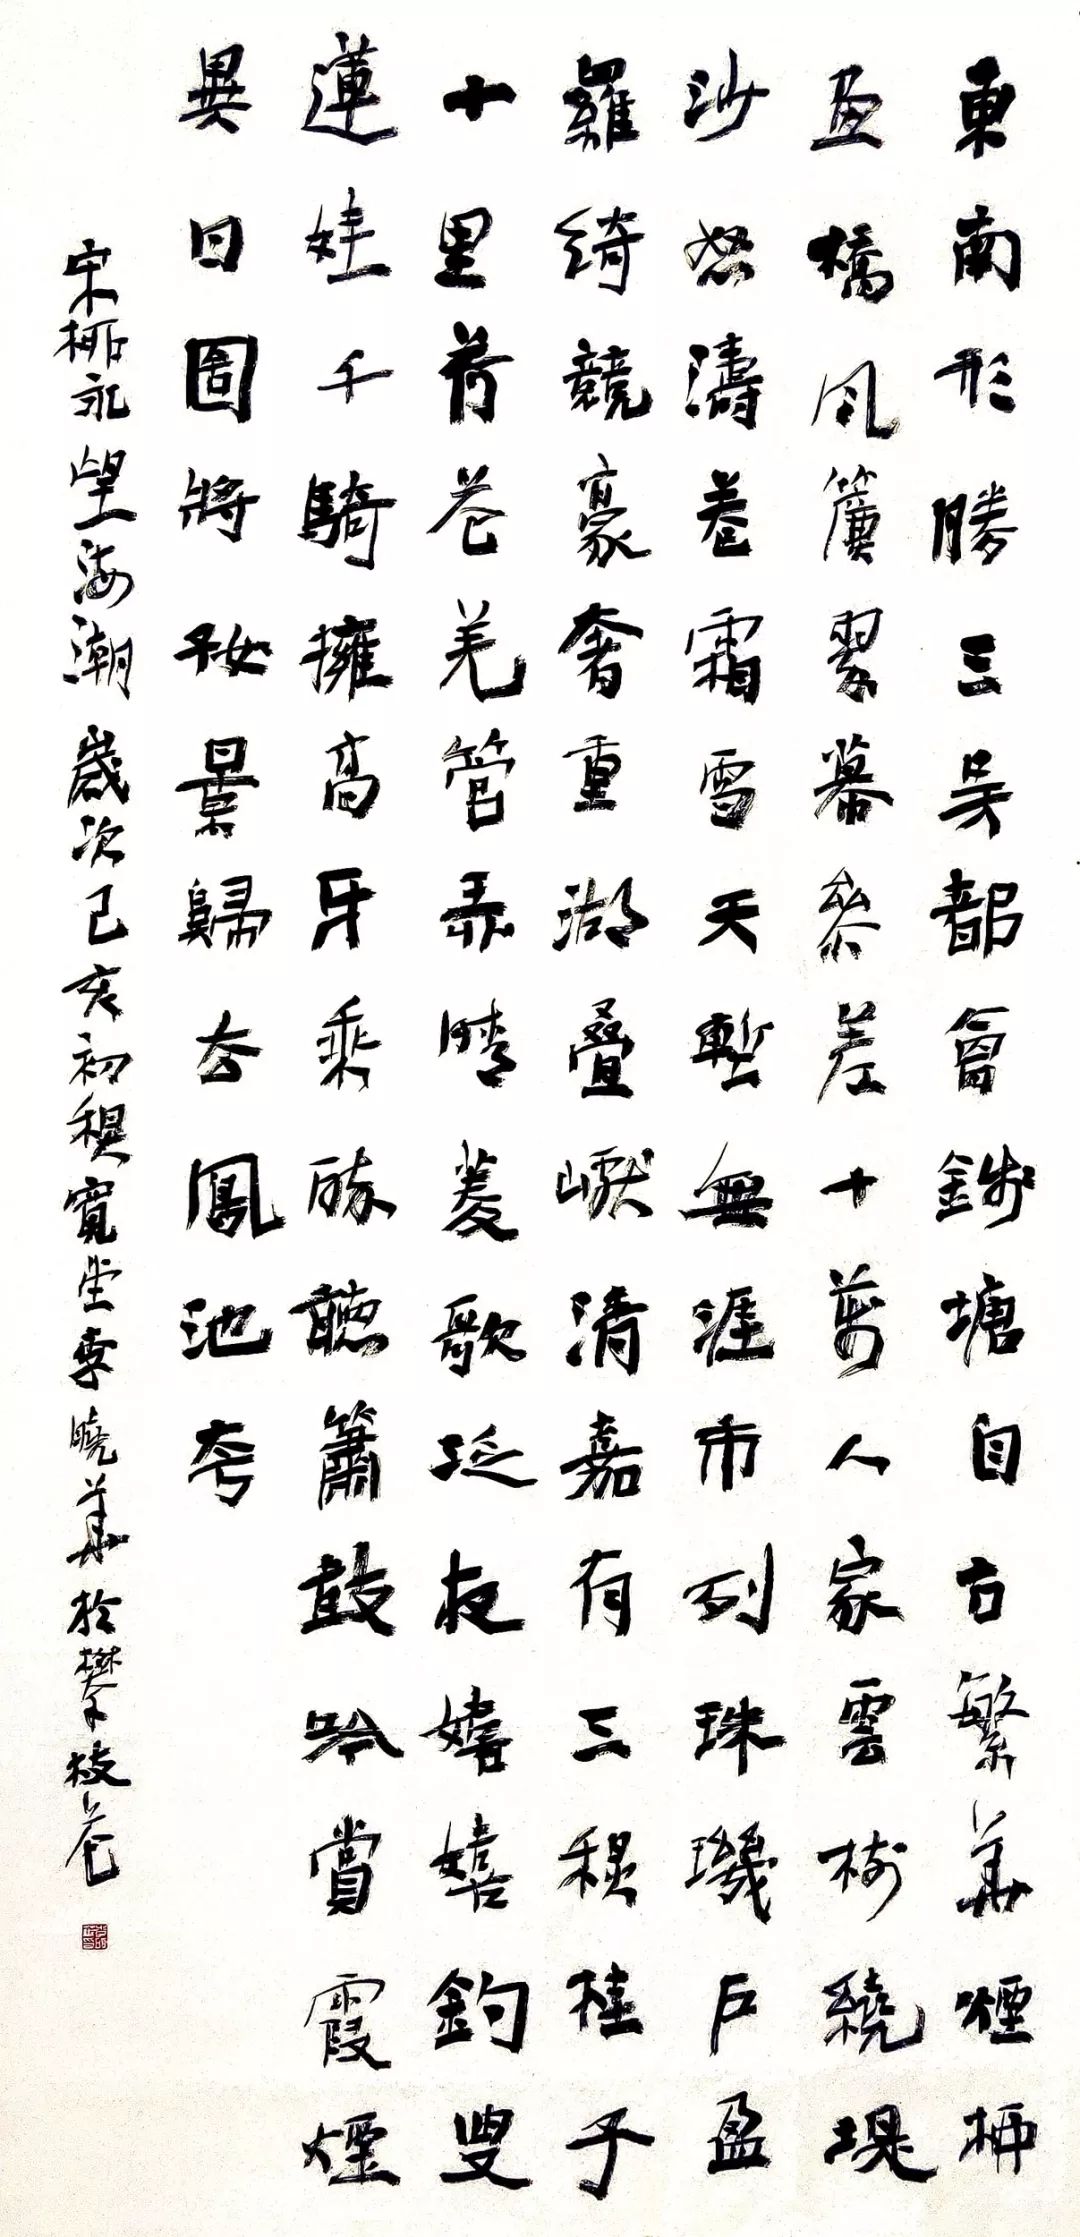 東南形勝三吳都會錢塘自古繁華煙柳
畫橋風簾翠幕參差十萬人家雲樹繞堤
沙怒濤卷霜雪天塹無涯市列珠璣戶盈
羅綺競豪奢重湖疊巘清嘉有三秋桂子
十里荷花羌管弄晴菱歌泛夜嬉嬉釣叟
蓮娃千騎擁高牙乘醉聽簫鼓吟賞霞煙
異日圖將好景歸去鳳池夸
宋柳永望海潮歲次己亥初秋寬堂李曉華於攀枝花